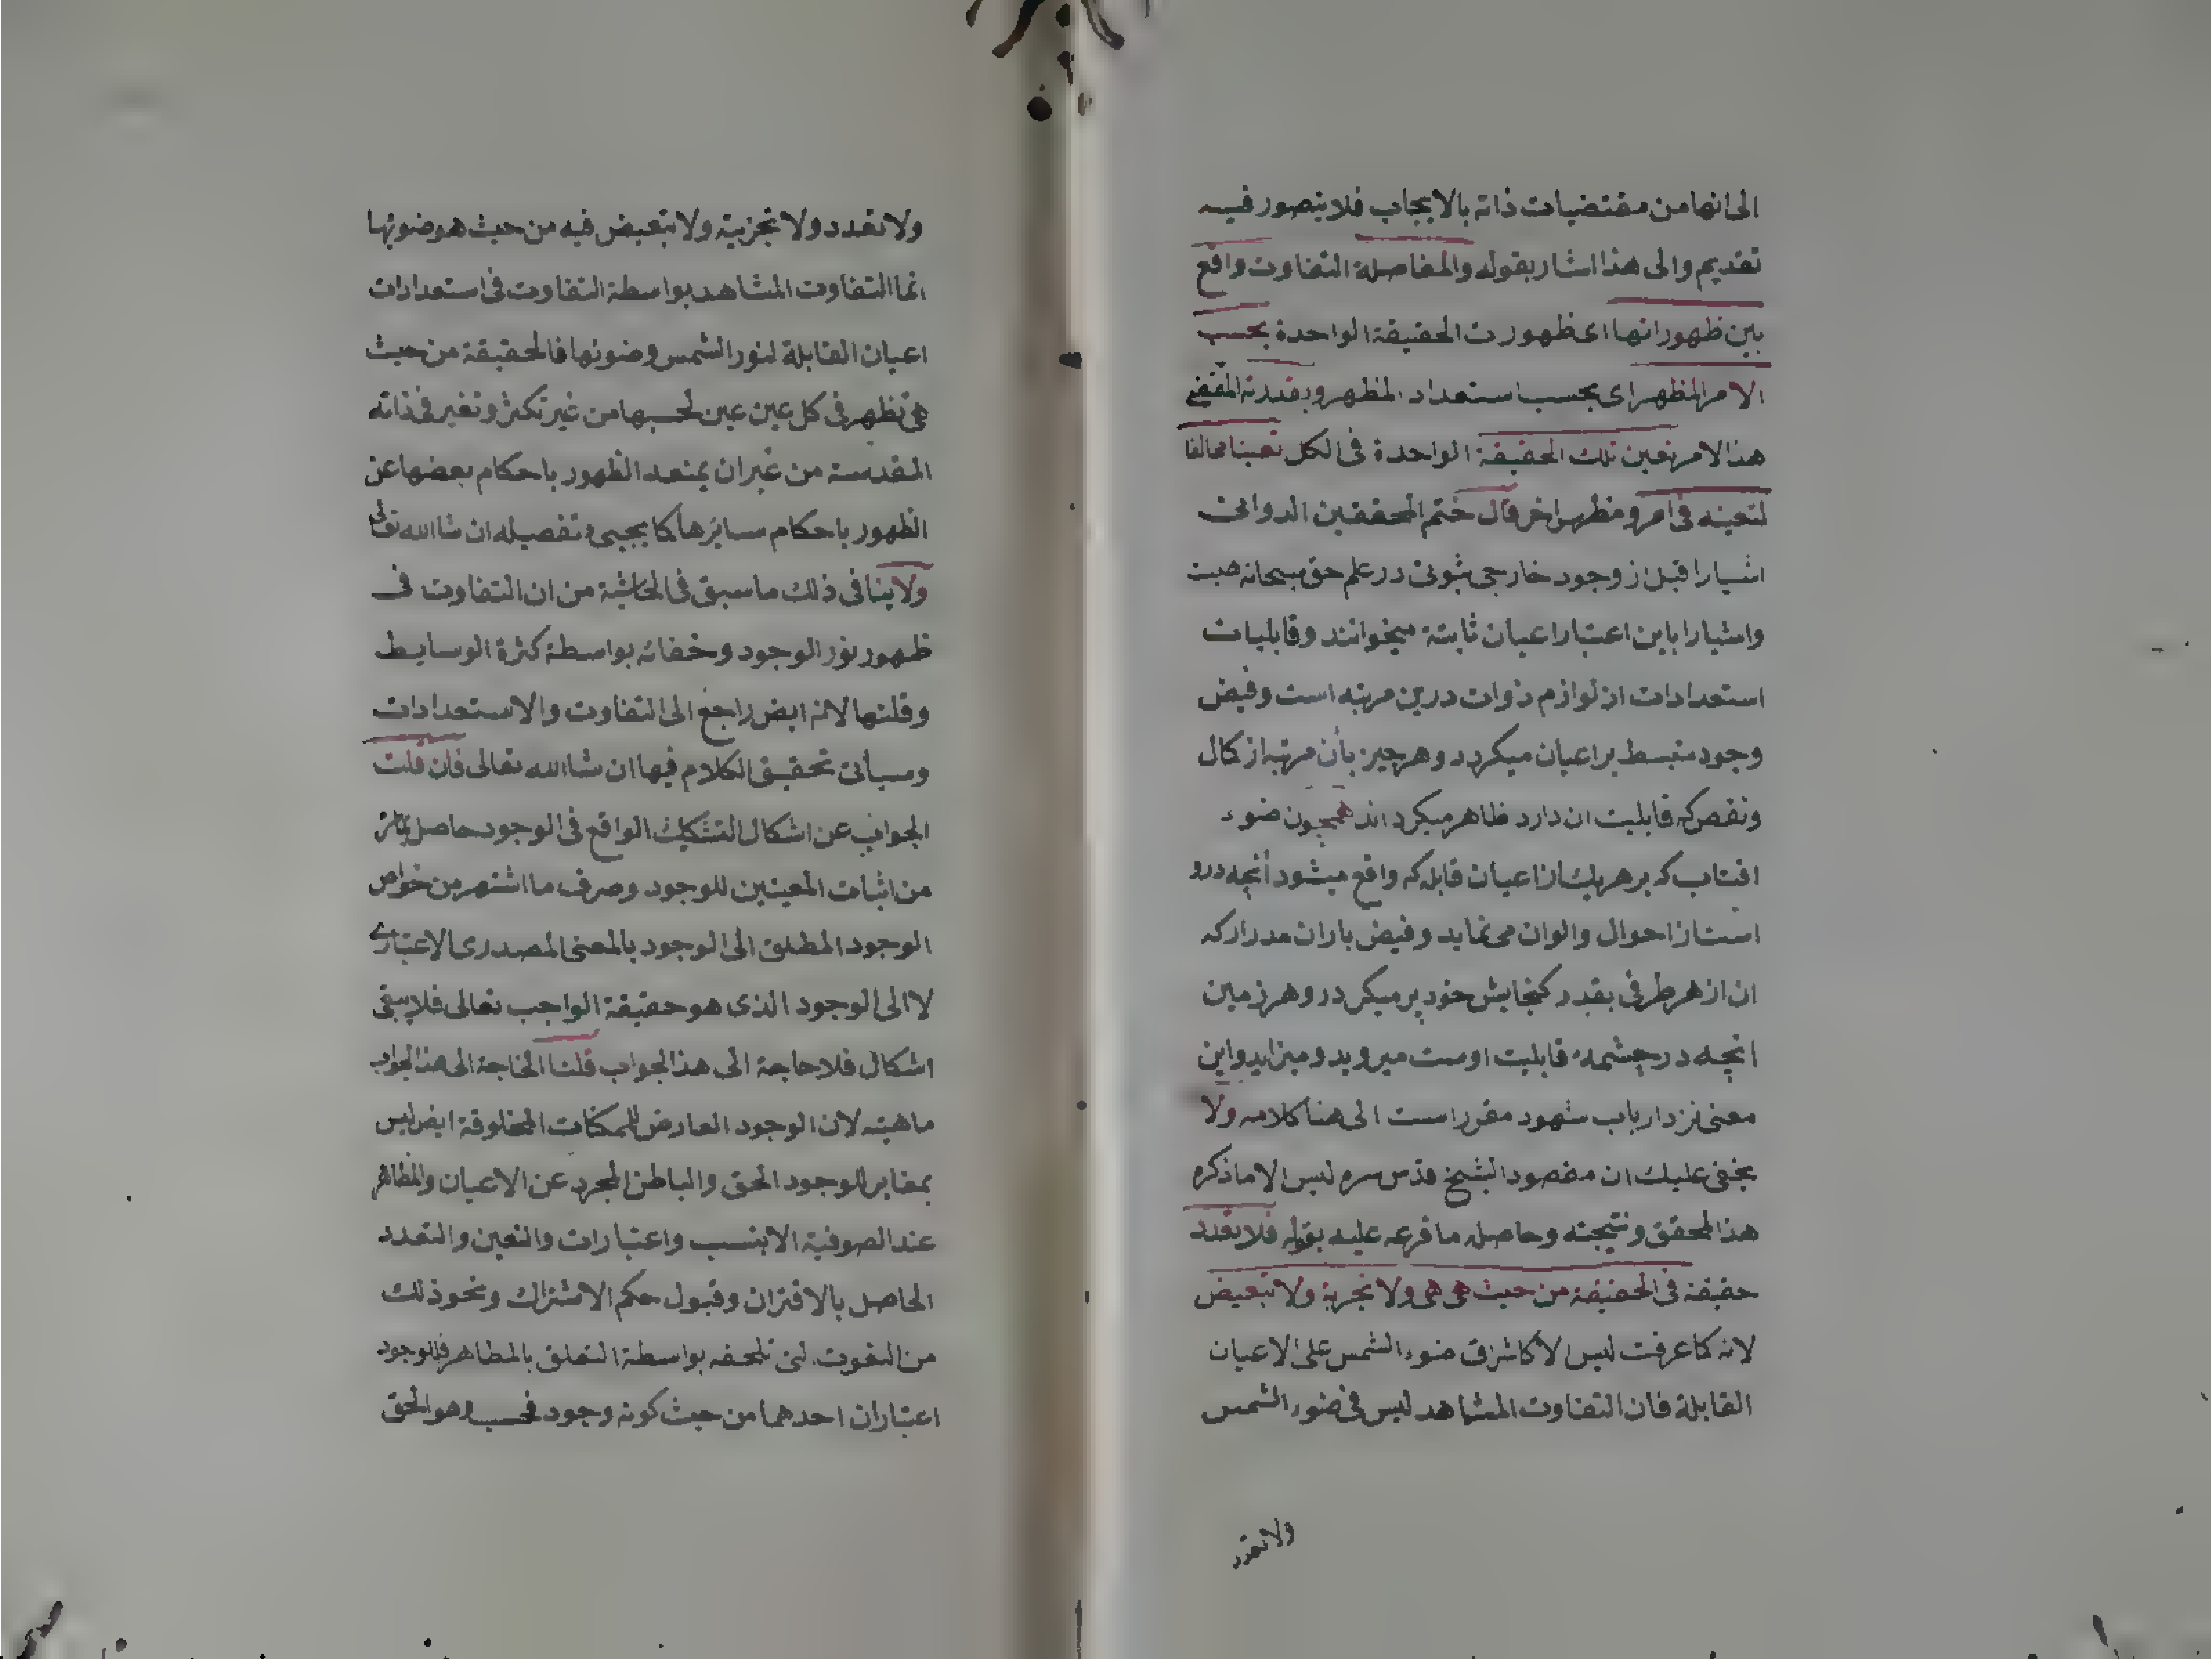 الى انها من مقتضيات ذاته بالايجاب فلا يتصور فيه
تقديم والى هذا اشار بقوله والمفاصلة التفاوت واقع
بين ظهوراتها اى ظهورت الحقيقة الواحدة بحسب
الامر المظهر اى بحسب استعداد المظهر وبقدرته المقتضى
هذا الامر تعين تلك الحقيقة الواحدة فى الكل تعينا مخالفا
لتعينه فى امر ومظهر اخر قال ختم المحققين الدوانى
اشيارا قبل از وجود خارجى ثبوتى در علم حق سبحانه
واشيارا باين اعتبار اعيان ثابتة ميخوانند وقابليات
استعدادات از لوازم ذوات درين مرتبه است وفيض
وجود منبسط بر اعيان ميكردد وهر چيز بأن مرتبه از كمال
ونقص كه قابليت ان دارد ظاهر ميكرداند همچون ضوء
افتاب كه بر هريك از اعيان قابله كه واقع ميشود أنچه درو
است از احوال والوان مى نمايد وفيض باران مدرار كه
ان از هر طرفى بقدر كنجايش خود پر ميكردد و هر زمين
انچه در چشمهء قابليت اوست ميرويد وميزايد واين
معنى نزد ارباب شهود مقرر است الى هنا كلامه ولا
يخفى عليك ان مقصود الشيخ قدس سره ليس الا ما ذكره
هذا المحقق ونتيجته وحاصله ما فرعه عليه بقوله فلا تعدد
حقيقة فى الحقيقة من حيث هى هى ولا تجزية ولا تبعيض
لانه كما عرفت ليس الا كاشراق ضوء الشمس على الاعيان
القابلة فان التفاوت المشاهد ليس فى ضوء الشمس
ولا تعدد
ولا تعدد ولا تجزية ولا تبعيض فيه من حيث هو ضوئها
انما التفاوت المشاهد بواسطة التفاوت فى استعدادات
اعيان القابلة لنور الشمس وضوئها فالحقيقة من حيث
هى تظهر فى كل عين عين بحسبها من غير تكثر وتغير فى ذاته
المقدسة من غير ان يمنعه الظهور باحكام بعضها عن
الظهور باحكام سايرها كما يجيئ تفصيله ان شاالله تعالى
ولا ينافى ذلك ما سبق فى الحاشية من ان التفاوت فى
ظهور نور الوجود وخفائه بواسطة كثرة الوسايط
وقلتها لانه ايض راجع الى التفاوت والاستعدادات
وسيأتى تحقيق الكلام فيها ان شاالله تعالى فان قلت
الجواب عن اشكال التشكيك الواقع فى الوجود حاصل
من اثبات المعنيين للوجود وصرف ما اشتهر من خواص
الوجود المطلق الى الوجود بالمعنى المصدرى الاعتبارى
لا الى الوجود الذى هو حقيقة الواجب تعالى فلا يبقى
اشكال فلا حاجة الى هذا الجواب قلنا الحاجة الى هذا الجواب
ماهيته لان الوجود العارض للممكنات المخلوقة ايض ليس
بمغاير للوجود الحق والباطن المجرد عن الاعيان والمظاهر
عند الصوفية الا بنسب واعتبارات والتعين والتعدد
الحاصل بالاقتران وقبول حكم الاشتراك ونحو ذلك
من النعوت لتى تلحقه بواسطة التعلق بالمظاهر فللوجود
اعتباران احدهما من حيث كونه وجود فحسب وهو الحق